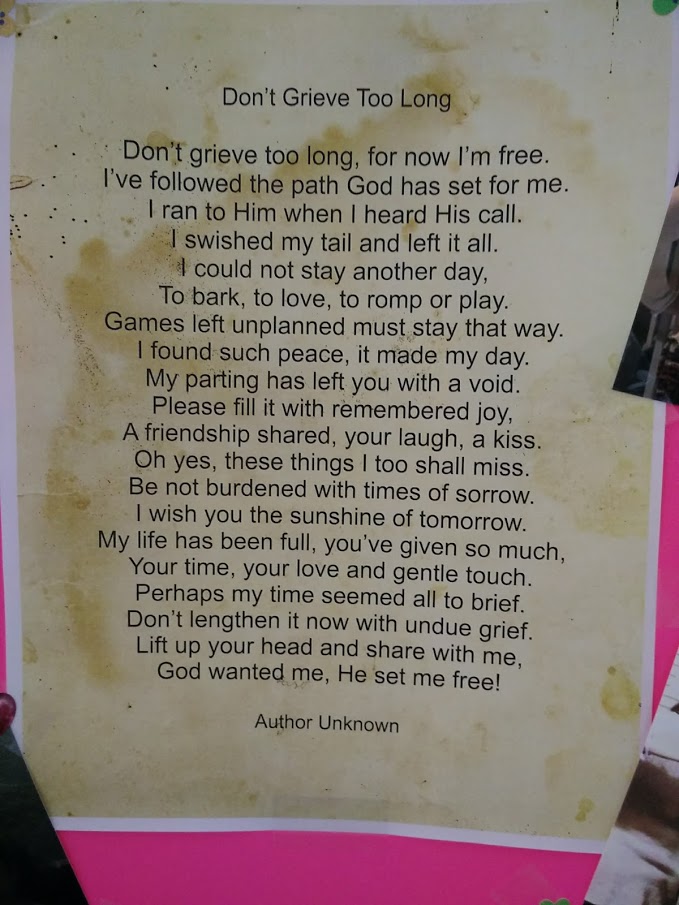 Don't Grieve Too Long
Don't grieve too long, for now I'm free.
I've followed the path God has set for me.
I ran to Him when I heard His call.
I swished my tail and left it all.
I could not stay another day,
To bark, to love, to romp or play.
Games left unplanned must stay that way.
I found such peace, it made my day.
My parting has left you with a void.
Please fill it with remembered joy,
A friendship shared, your laugh, a kiss.
Oh yes, these things I too shall miss.
Be not burdened with times of sorrow.
I wish you the sunshine of tomorrow.
My life has been full, you've given so much,
Your time, your love and gentle touch.
Perhaps my time seemed all to brief.
Don't lengthen it now with undue grief.
Lift up your head and share with me,
God wanted me, He set me free!
Author Unknown